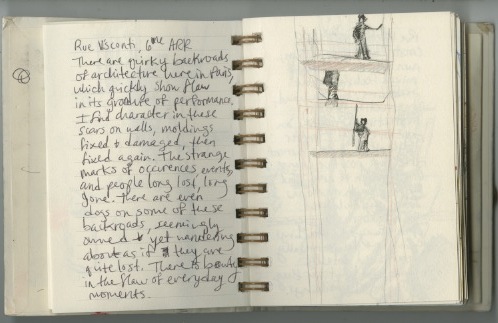 Rue Visconti, 6me ARR
There are quirky backroads
of architecture here in Paris,
which quickly show flaw
in its of performance.
I find character in these
scars on walls, moldings
fixed & damaged, then
fixed again. The strange
marks of occurences, events,
and people long lost, long
gone. There are even
dogs on some of these
backroads, seemingly
owned & yet wandering
about as if they are
quite lost. There is beauty
in the flaw of everyday
moments.